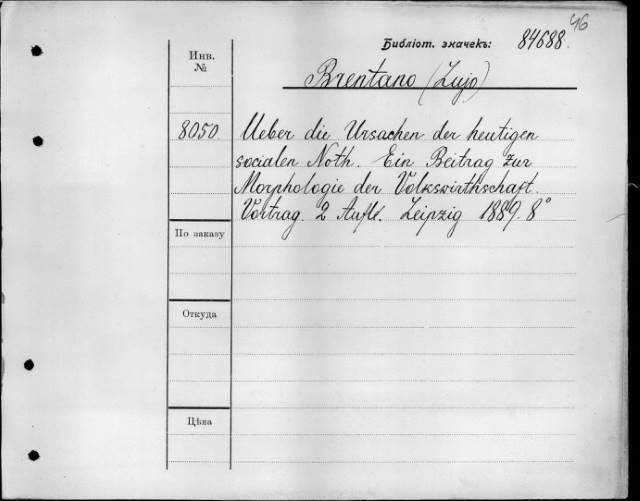 46
Библіот. значекъ: 84688.
Инв.
№
Brentano (Lujo)
8050. Ueber die Ursachen der heutigen
socialen Noth. Ein Beitrag zur
Morphologie der Volkswirthschaft.
Vortrag. 2 Aufl. Leipzig 1889. 8°
По заказу
Откуда
Цѣна